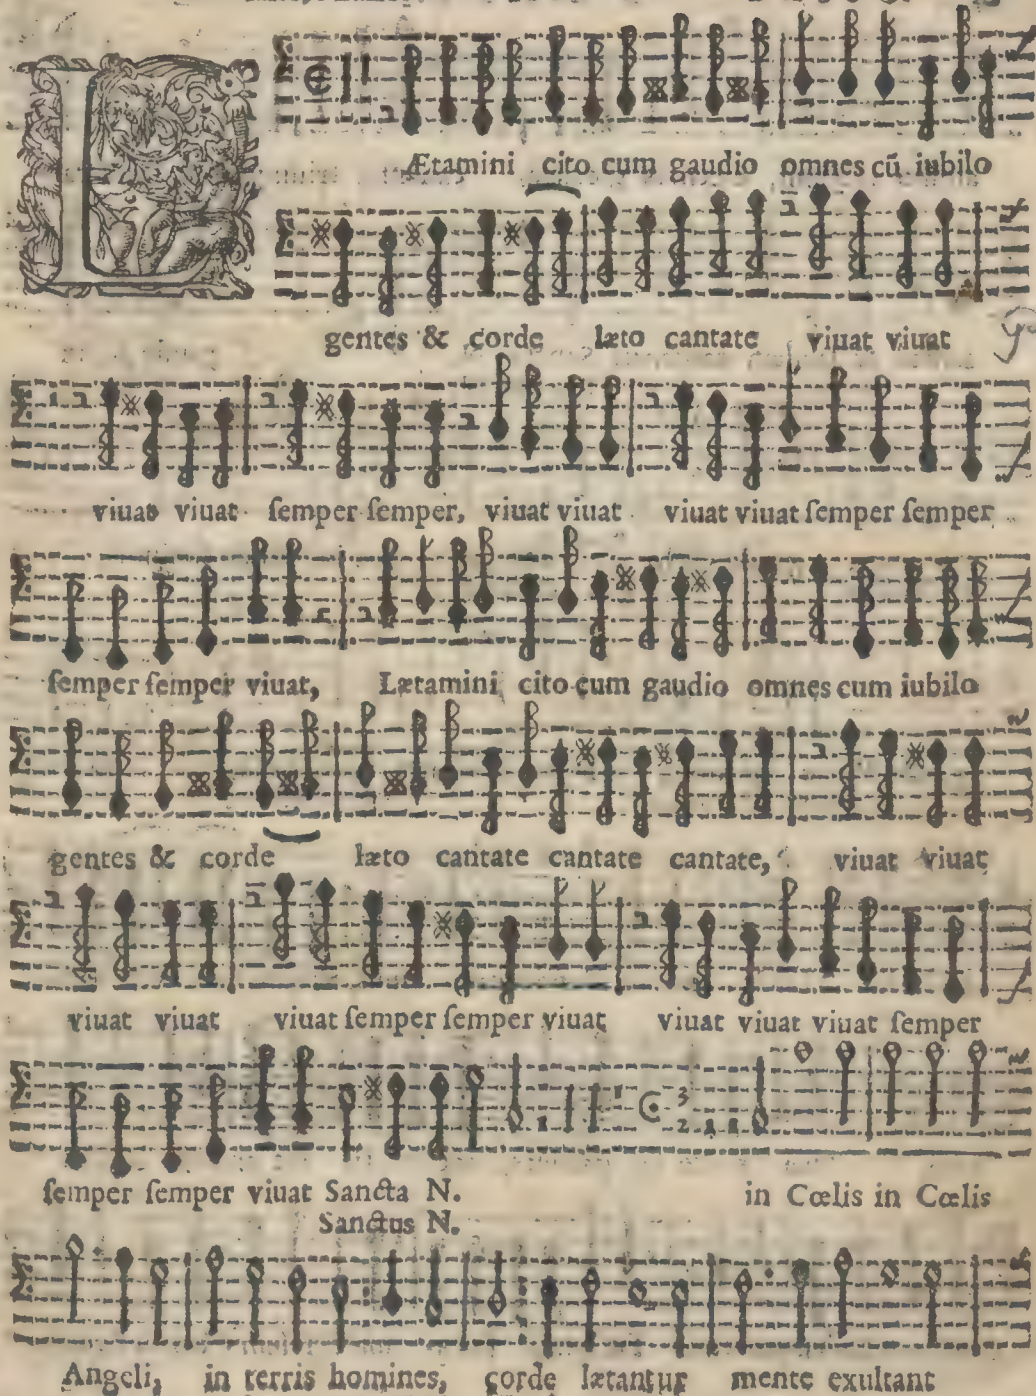 LÆtamini cito cum gaudio omnes cū iubilo
gentes & corde læto cantate viuat viuat
viuat viuat ſemper ſemper, viuat viuat viuat viuat ſemper ſemper
ſemper ſemper viuat, Lætamini cito cum gaudio omnes cum iubilo
gentes & corde læto cantate cantate cantate, viuat viuat
viuat viuat viuat ſemper ſemper viuat viuat viuat viuat ſemper
ſemper ſemper viuat Sancta N. in Cœlis in Cœlis
Sanctus N.
Angeli, in terris homines, corde lætantur mente exultant